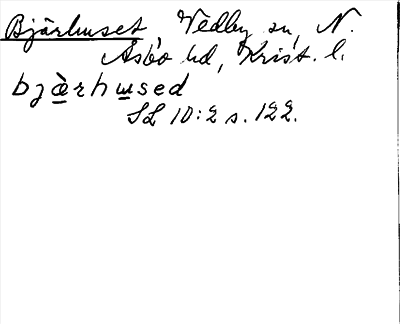 Bjärhuset, Vedby sn, N.
Åsbo hd, Krist. l.
bjæ̀rhɯsed
SL 10:2 s. 122.